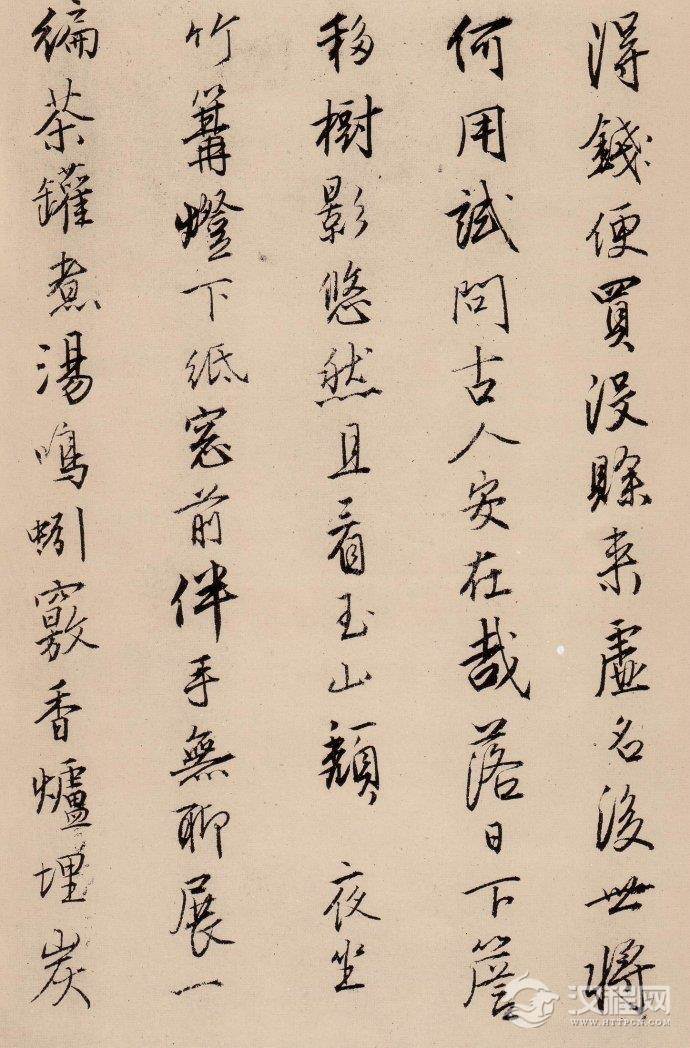 得錢便買沒賒來虛名後世將
何用試問古人安在哉落日下簷
移樹影悠然且看玉山頹 夜坐
竹篝燈下紙窓前伴手無聊展一
編茶罐煮湯鳴蚓竅香爐埋炭
汉程网
WWW.HTTPCN.COM